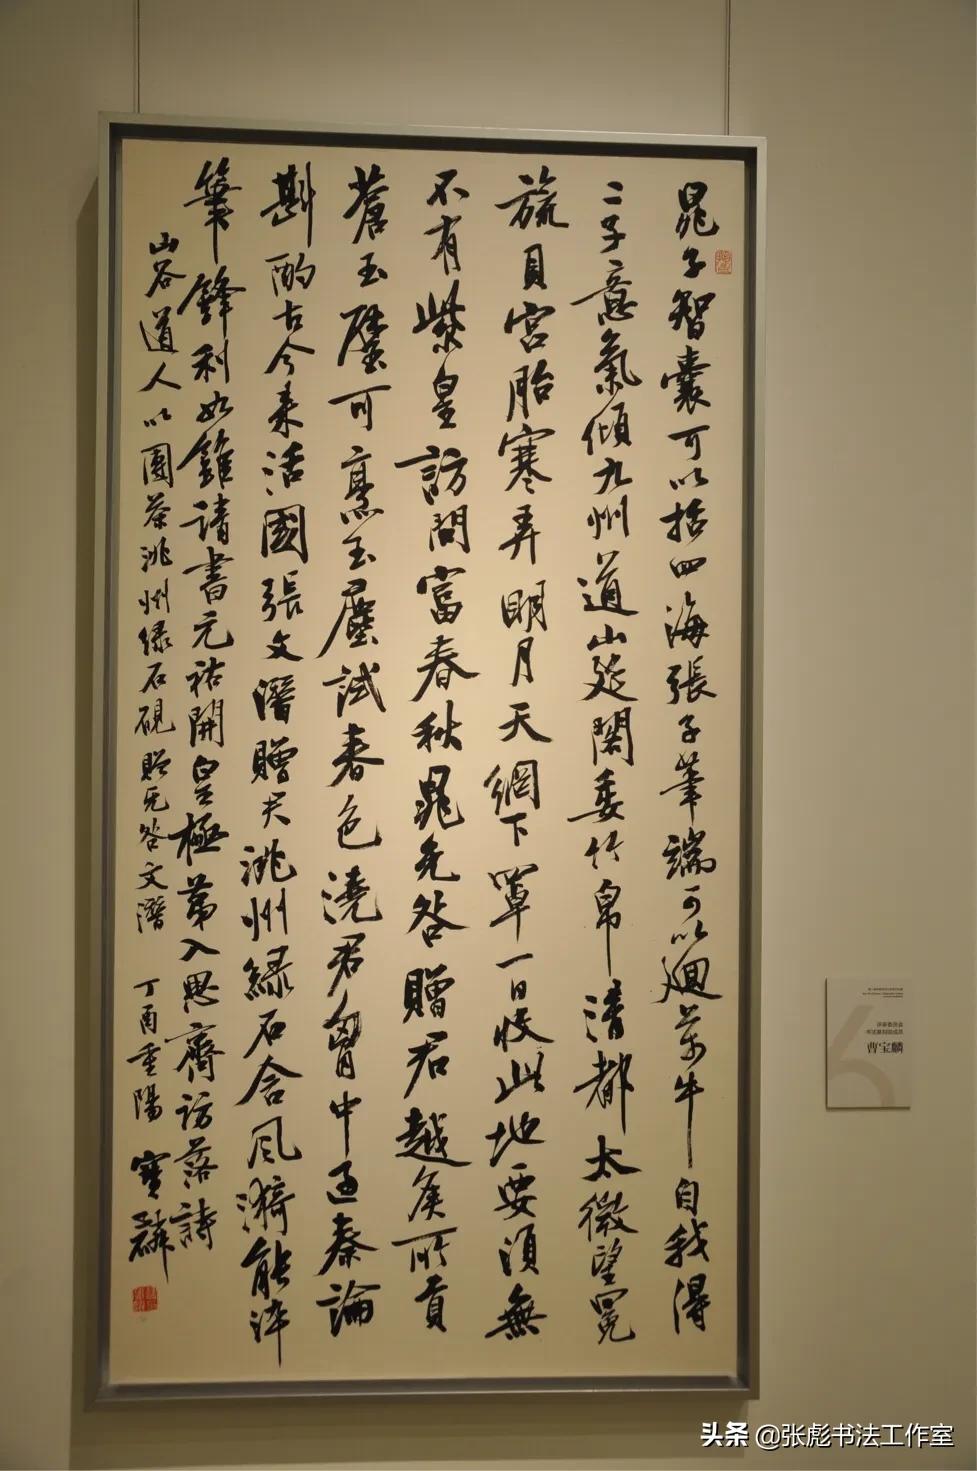 晁子智囊可以括四海張子筆端可以迴萬牛自我得
二子意氣傾九州道山延閣委竹帛清都太微望冕
旒貝宮胎寒弄明月天網下罩一日收此地要須無
不有紫皇訪問富春秋晁无咎贈君越矦所貢
蒼玉璧可烹玉塵試春色澆君胷中過秦論
斟酌古今來活國張文潛贈君洮州緑石含風漪能淬
筆鋒利如錐請書元祐開皇極第入思齊訪落詩
山谷道人以團茶洮州緑石硯贈无咎文潛 丁酉重陽 寶麟
曹宝麟
头条 @张彪书法工作室